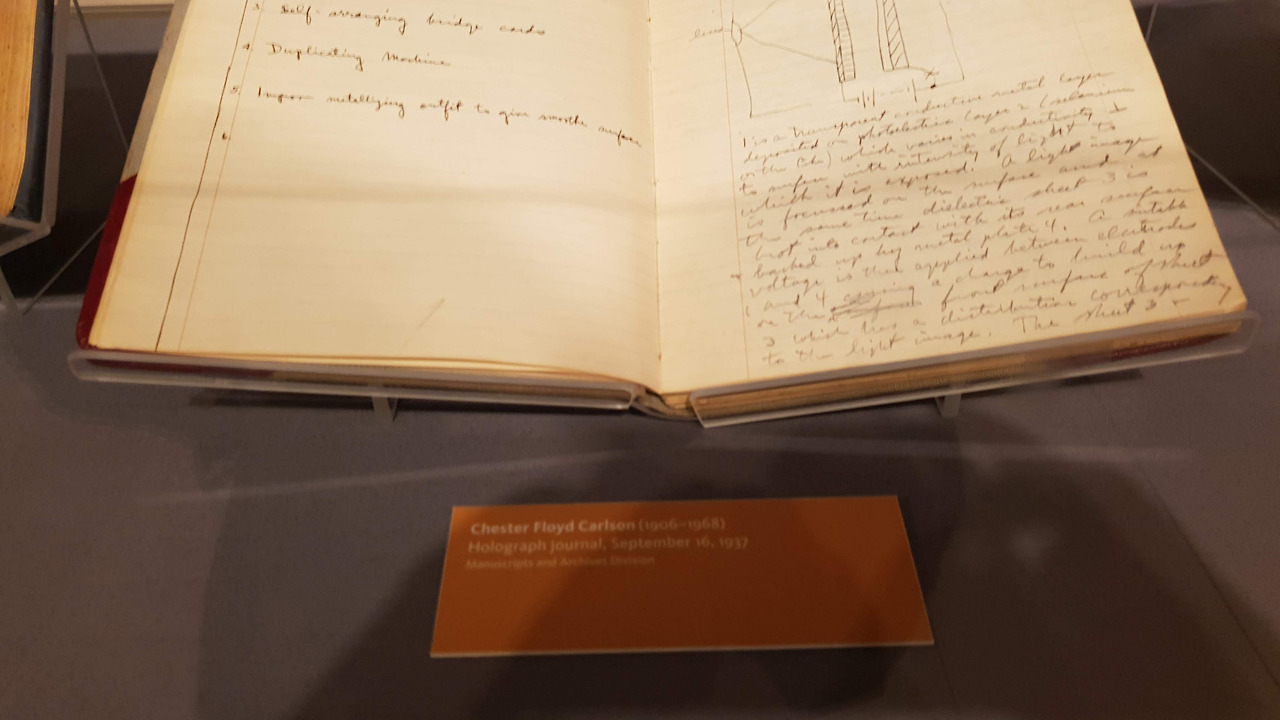 3. Self-arranging bridge cards
4. Duplicating Machine
5. Improv metallizing outfit to give smoothe surface
6
lens
1 is a transparent conductive metal layer
deposited on photoelectric layer 2 (selenium
or the like) which varies in conductivity ⊥
to surface with intensity of light to
which it is exposed. A light image
is focussed on the surface and at
the same time dielectric sheet 3 is
brot into contact with its rear surface
backed up by metal plate 4. A suitable
voltage is then applied between electrodes
1 and 4 causing a charge to build up
on the front surface of sheet
3 which has a distribution corresponding
to the light image. The sheet 3
Chester Floyd Carlson (1906–1968)
Holograph journal, September 16, 1937
Manuscripts and Archives Division